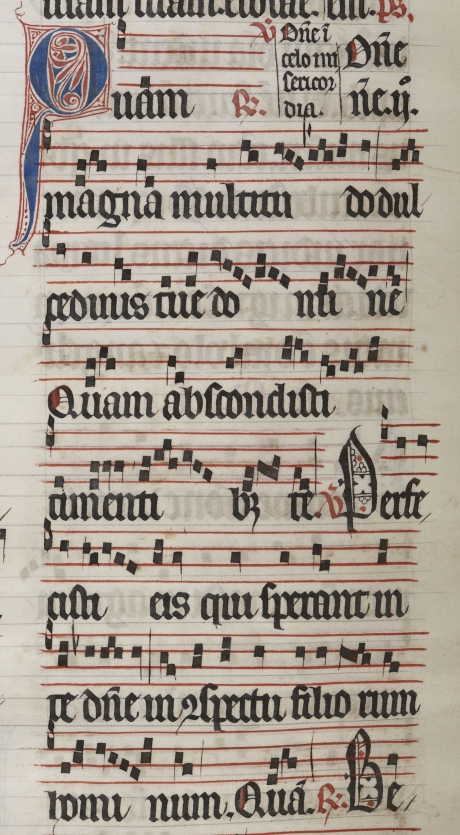 ℣. Dñe ĩ Dñe
celo mi
sericor
Quam ℟. dia. ñe.ij.
magna multitu do dul
cedinis tue do mi ne
Quam abscondisti
timenti bꝫ te. ℣. Perfe
cisti eis qui sperant in
te dñe in ꝯspectu filio rum
homi num. Quã. ℟. Be